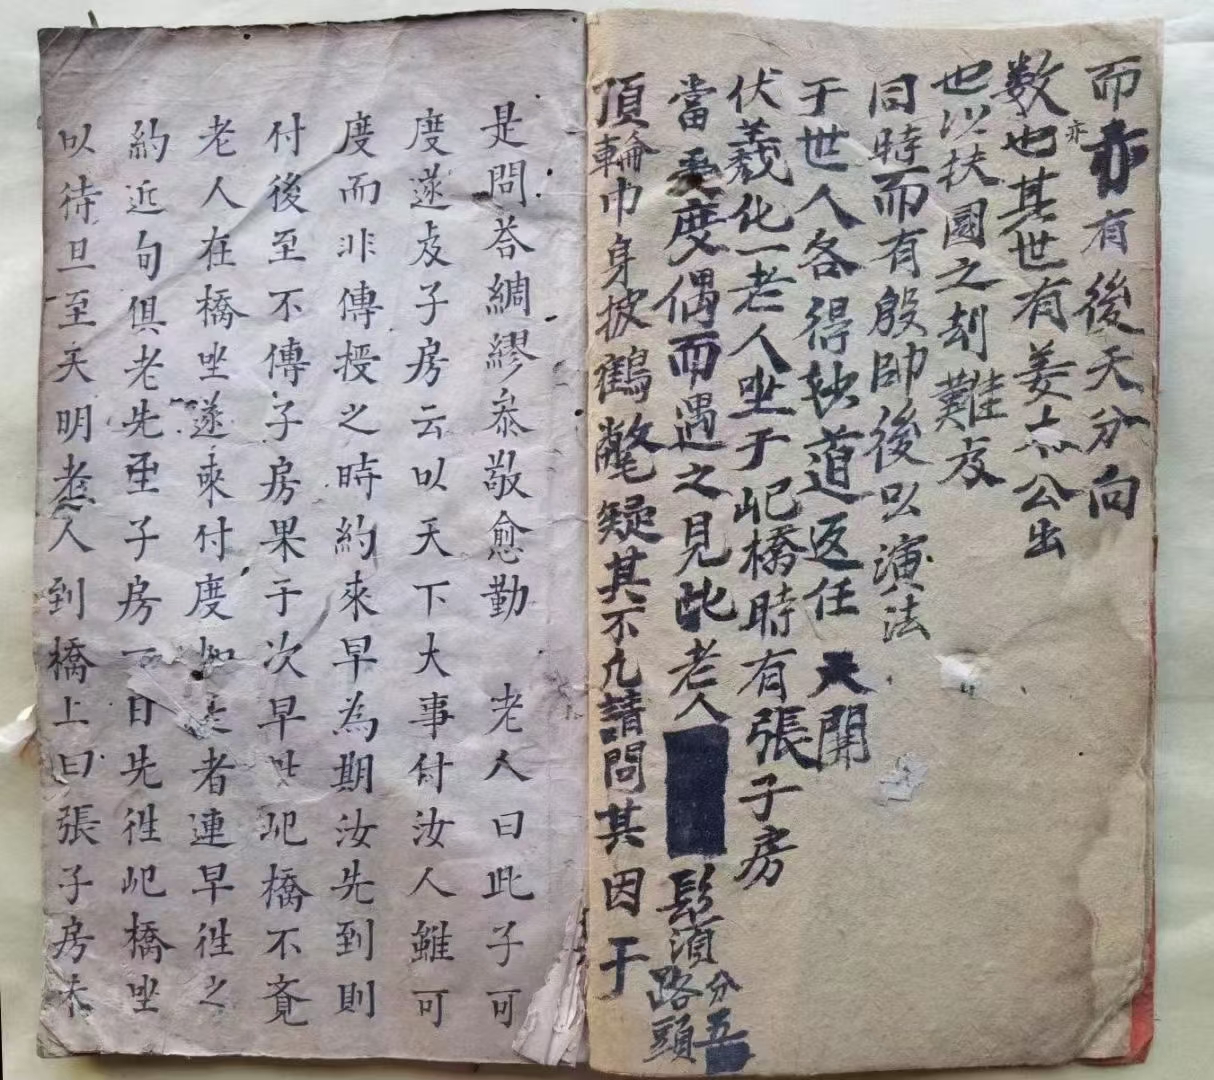 而亦有後天分向
数也其世有姜太公出
亦
也以扶國之刼難及
同時而有殷帥後以演法
于世人各得妙道返任天開
伏羲化一老人坐于圯橋時有張子房
當受度偶而遇之見此老人鬚濱分五
路頭
頂輪巾身披鶴氅疑其不凢請問其因于
是問荅綢繆叅敬愈勤 老人曰此子可
度遂及子房云以天下大事付汝人雖可
度而非傳授之時約來早為期汝先到則
付後至不傳子房果于次早徃圯橋不覔
老人在橋坐遂來付度如是者連早徃之
約近旬俱老先至子房一日先徃圯橋坐
以待旦至天明老人到橋上曰張子房未